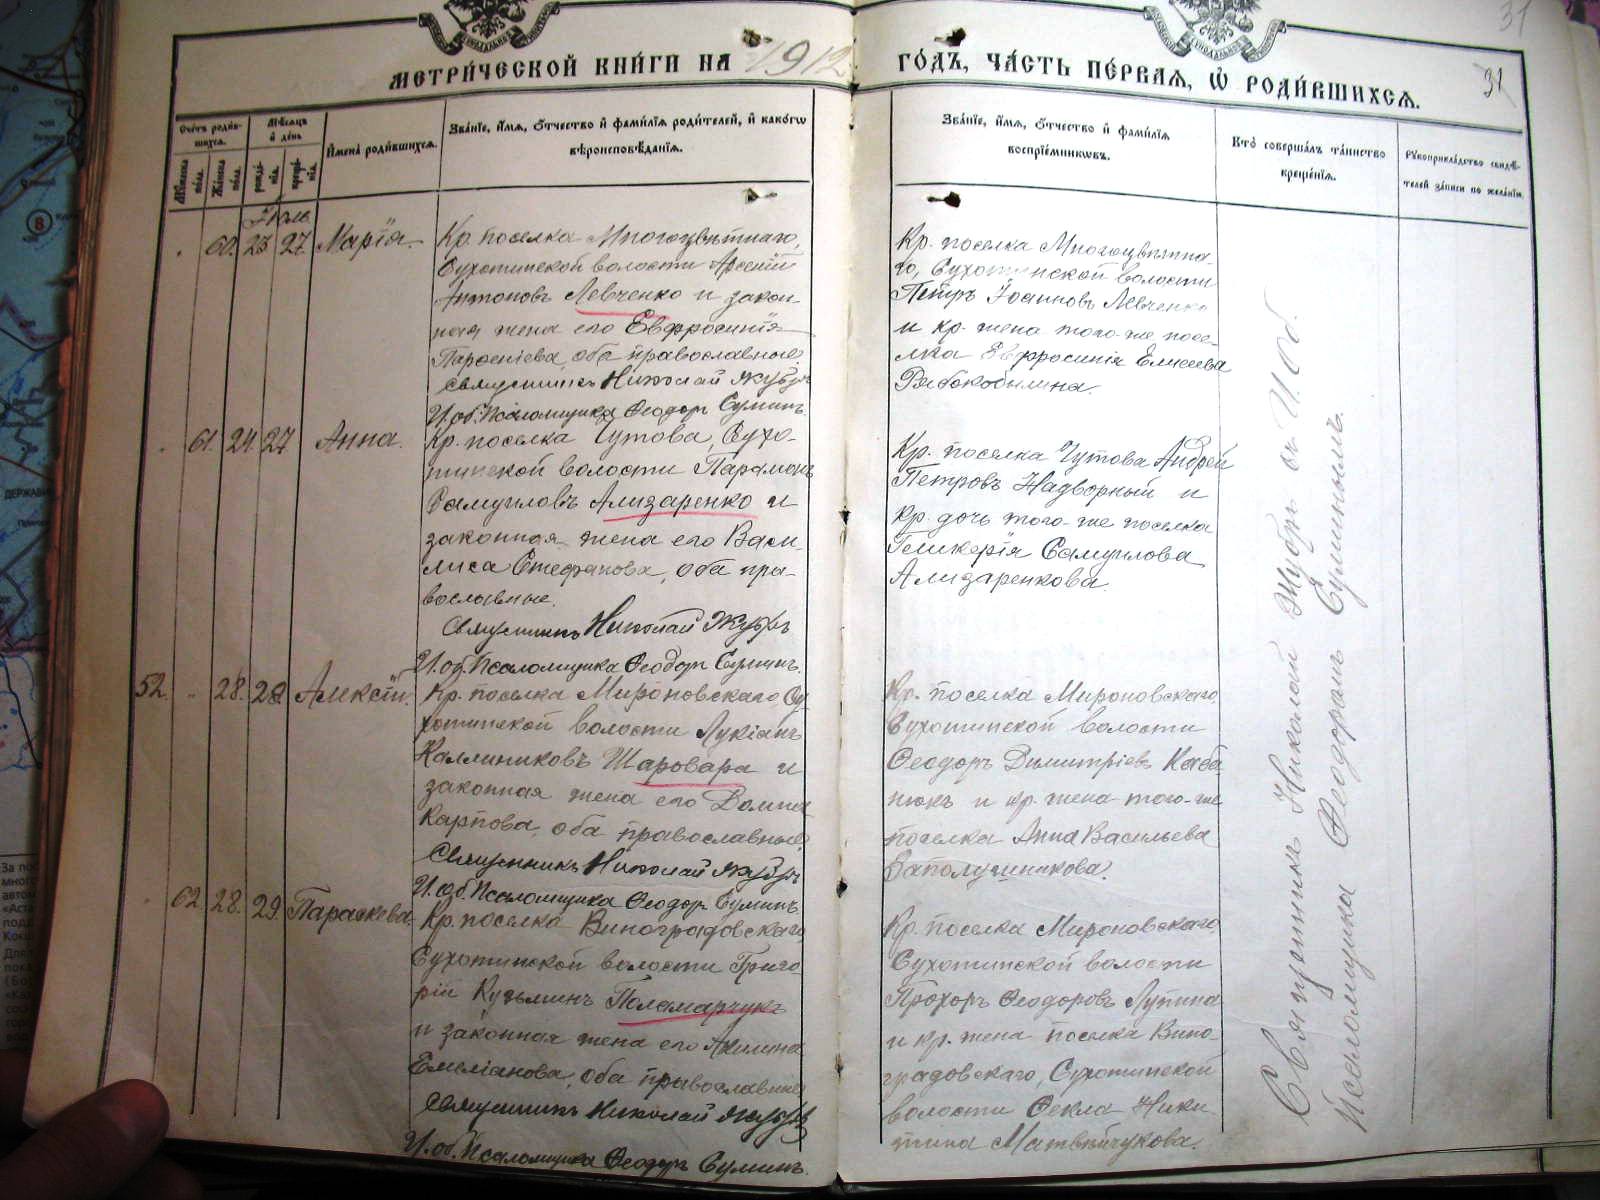 31
МЕТРИ́ЧЕСКОЙ КНИ́ГИ НА 1912 ГО́ДЪ, ЧА́СТЬ ПЕ́РВАЯ, Ѡ҆ РОДИ́ВШИХСЯ.
31
Сче́тъ роди́в-
шихся.
Му́жска
по́ла.
Же́нска
по́ла.
Мѣ́сяцъ
и҆ де́нь
рожде́-
нїя.
креще́-
нїя.
И҆мена̀ роди́вшихся.
Зва́нїе, и҆́мя, ѻ҆́тчество и҆ фами́лїя роди́телей, и҆ како́гѡ
вѣроисповѣ́данїя.
Зва́нїе, и҆́мя, ѻ҆́тчество и҆ фами́лїя
воспрїе́мникѡвъ.
Кто̀ соверша́лъ та́инство
креще́нїя.
Рꙋкоприкла́дство свидѣ́-
телей за́писи по жела́нїю.
Іюль
60. 23 27 Марія.
Кр. поселка Многоцвѣтнаго,
Сухотинской волости Арсеній
Антоновъ Левченко и закон-
ная жена его Евфросинія
Парѳеніева, оба православные.
Священникъ Николай Якубъ
И. об. Псаломщика Ѳеодоръ Суминъ.
Кр. поселка Многоцвѣтна-
го, Сухотинской волости
Петръ Іоанновъ Левченко
и кр. жена того-же посе-
лка Евфросинія Елисеева
Рябокобылина.
61. 24 27 Анна.
Кр. поселка Чутова, Сухо-
тинской волости Парамонъ
Самуиловъ Ализаренко и
законная жена его Васи-
лиса Стефанова, оба пра-
вославные.
Священникъ Николай Якубъ
И. об. Псаломщика Ѳеодоръ Суминъ.
Кр. поселка Чутова Андрей
Петровъ Надворный и
кр. дочь того-же поселка
Гликерія Самуилова
Ализаренкова.
52. 28. 28. Алексій.
Кр. поселка Мироновскаго, Су-
хотинской волости Лукіанъ
Каллиниковъ Шаровара и
законная жена его Домна
Карпова, оба православные.
Священникъ Николай Якубъ
И. об. Псаломщика Ѳеодоръ Суминъ.
Кр. поселка Мироновскаго,
Сухотинской волости
Ѳеодоръ Димитріевъ
и кр. жена того-же
поселка Анна Васильева
Заполушникова.
62. 28. 29. Параскева.
Кр. поселка Виноградовскаго,
Сухотинской волости Григо-
рій Кузьминъ Поламарчукъ
и законная жена его Акилина
Емеліанова, оба православные
Священникъ Николай Якубъ
И. об. Псаломщика Ѳеодоръ Суминъ.
Кр. поселка Мироновскаго,
Сухотинской волости
Прохоръ Ѳеодоровъ Лупина
и кр. жена поселка Вино-
градовскаго, Сухотинской
волости Ѳекла Ники-
тина Матвейчукова.
Священникъ Николай Якубъ съ И. Об.
Псаломщика Ѳеодоромъ Суминымъ.